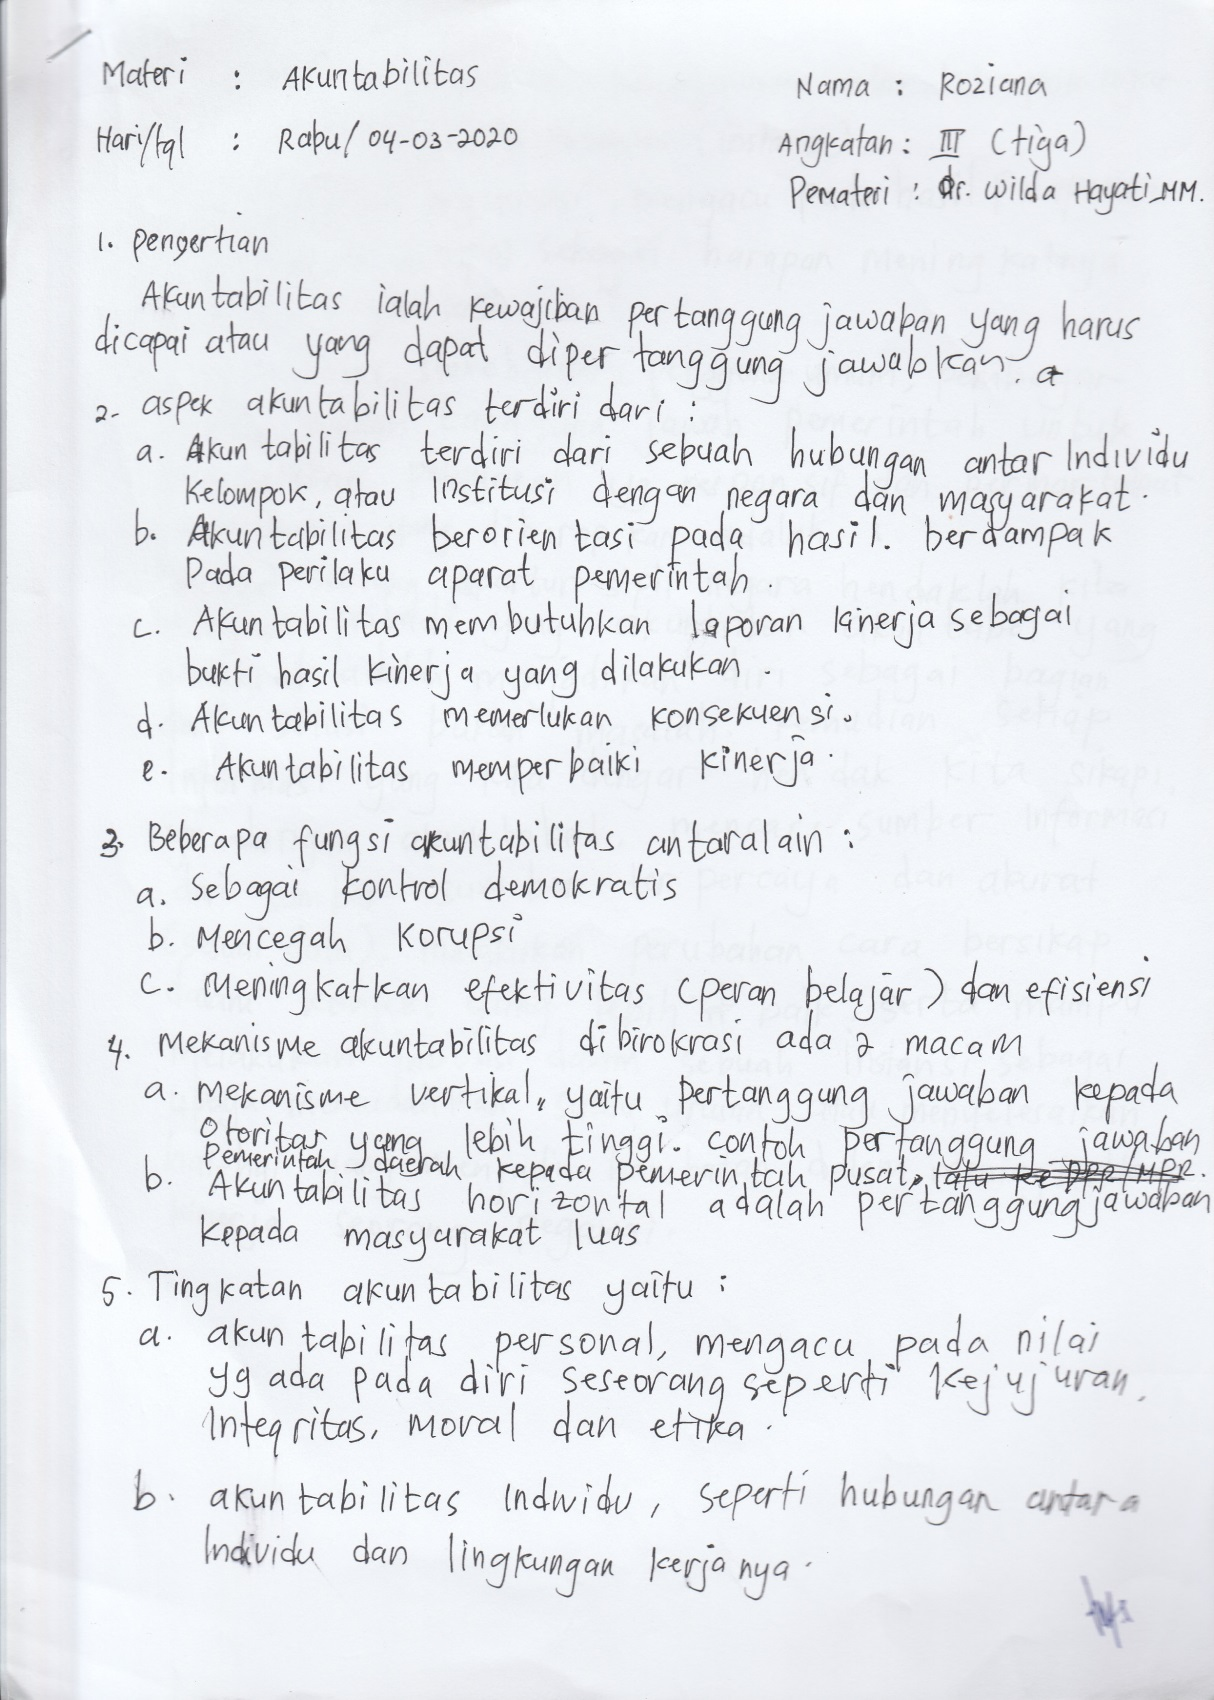 Materi : Akuntabilitas
Nama : Roziana
Hari/tgl : Rabu/ 04-03-2020
Angkatan : III (tiga)
Pemateri : dr. Wilda Hayati, MM.
1. Pengertian
Akuntabilitas ialah kewajiban pertanggung jawaban yang harus
dicapai atau yang dapat dipertanggung jawabkan.
2. aspek akuntabilitas terdiri dari :
a. Akuntabilitas terdiri dari sebuah hubungan antar Individu
Kelompok, atau Institusi dengan negara dan masyarakat.
b. Akuntabilitas berorientasi pada hasil. berdampak
Pada perilaku aparat pemerintah.
c. Akuntabilitas membutuhkan laporan kinerja sebagai
bukti hasil kinerja yang dilakukan.
d. Akuntabilitas memerlukan konsekuensi.
e. Akuntabilitas memperbaiki kinerja.
3. Beberapa fungsi akuntabilitas antaralain :
a. Sebagai kontrol demokratis
b. Mencegah Korupsi
c. Meningkatkan efektivitas (peran belajar) dan efisiensi
4. Mekanisme akuntabilitas dibirokrasi ada 2 macam
a. Mekanisme vertikal, yaitu pertanggung jawaban kepada
Otoritas yang lebih tinggi. contoh pertanggung jawaban
Pemerintah daerah kepada pemerintah pusat, lalu ke DPR/MPR.
b. Akuntabilitas horizontal adalah pertanggung jawaban
kepada masyarakat luas
5. Tingkatan akuntabilitas yaitu :
a. akuntabilitas personal, mengacu pada nilai
yg ada pada diri seseorang seperti kejujuran,
Integritas, moral dan etika.
b. akuntabilitas Indwidu, seperti hubungan antara
Individu dan lingkungan kerjanya.